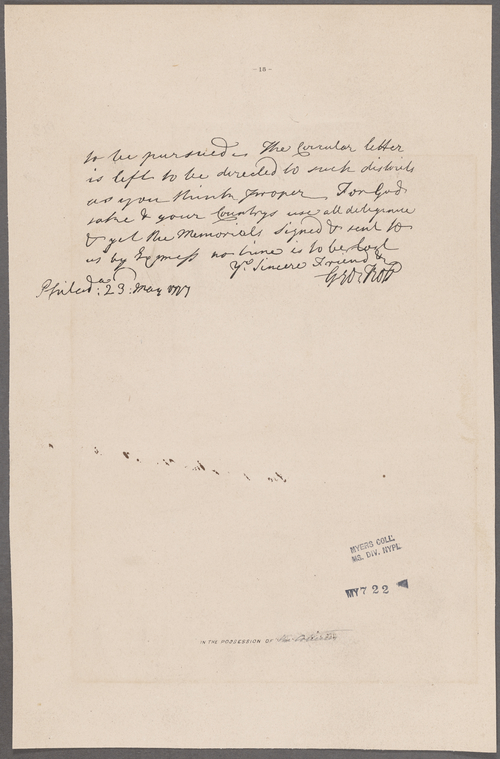 - 18 -
to be pursued. The Circular letter
is left to be directed to such districts
as you think proper. For Gods
sake & your Countrys use all diligence
& get the Memorials signed & sent to
us by Express no time is to be lost
Yr. Sincere Friend &
Geo: Ross
Philada: 23. May 1777
MYERS COLL.
MS. DIV. NYPL
MY 7 22
IN THE POSSESSION OF